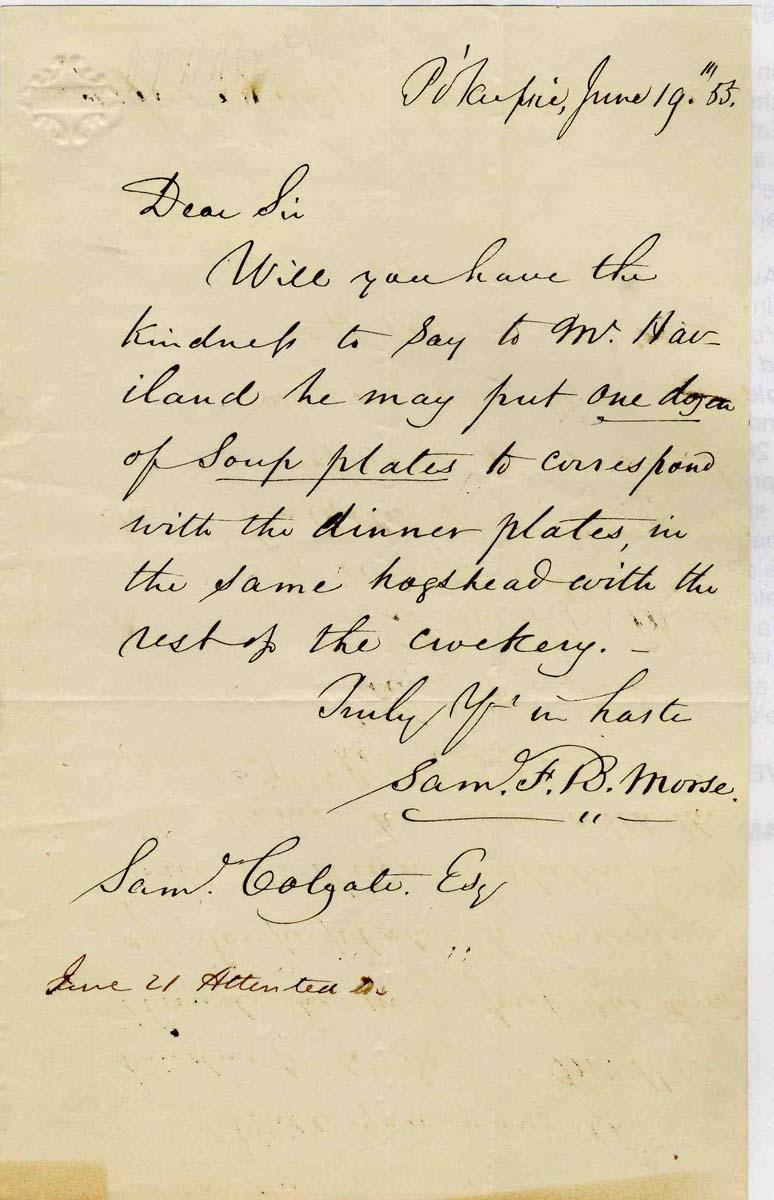 Po'keepsie, June 19. 55.
Dear Sir
Will you have the
kindness to say to Mr. Hav-
iland he may put one dozen
of Soup plates to correspond
with the dinner plates, in
the same hogshead with the
rest of the crockery. -
Truly Yrs in haste
Saml. F. B. Morse.
Saml. Colgate. Esq
June 21 Attented to